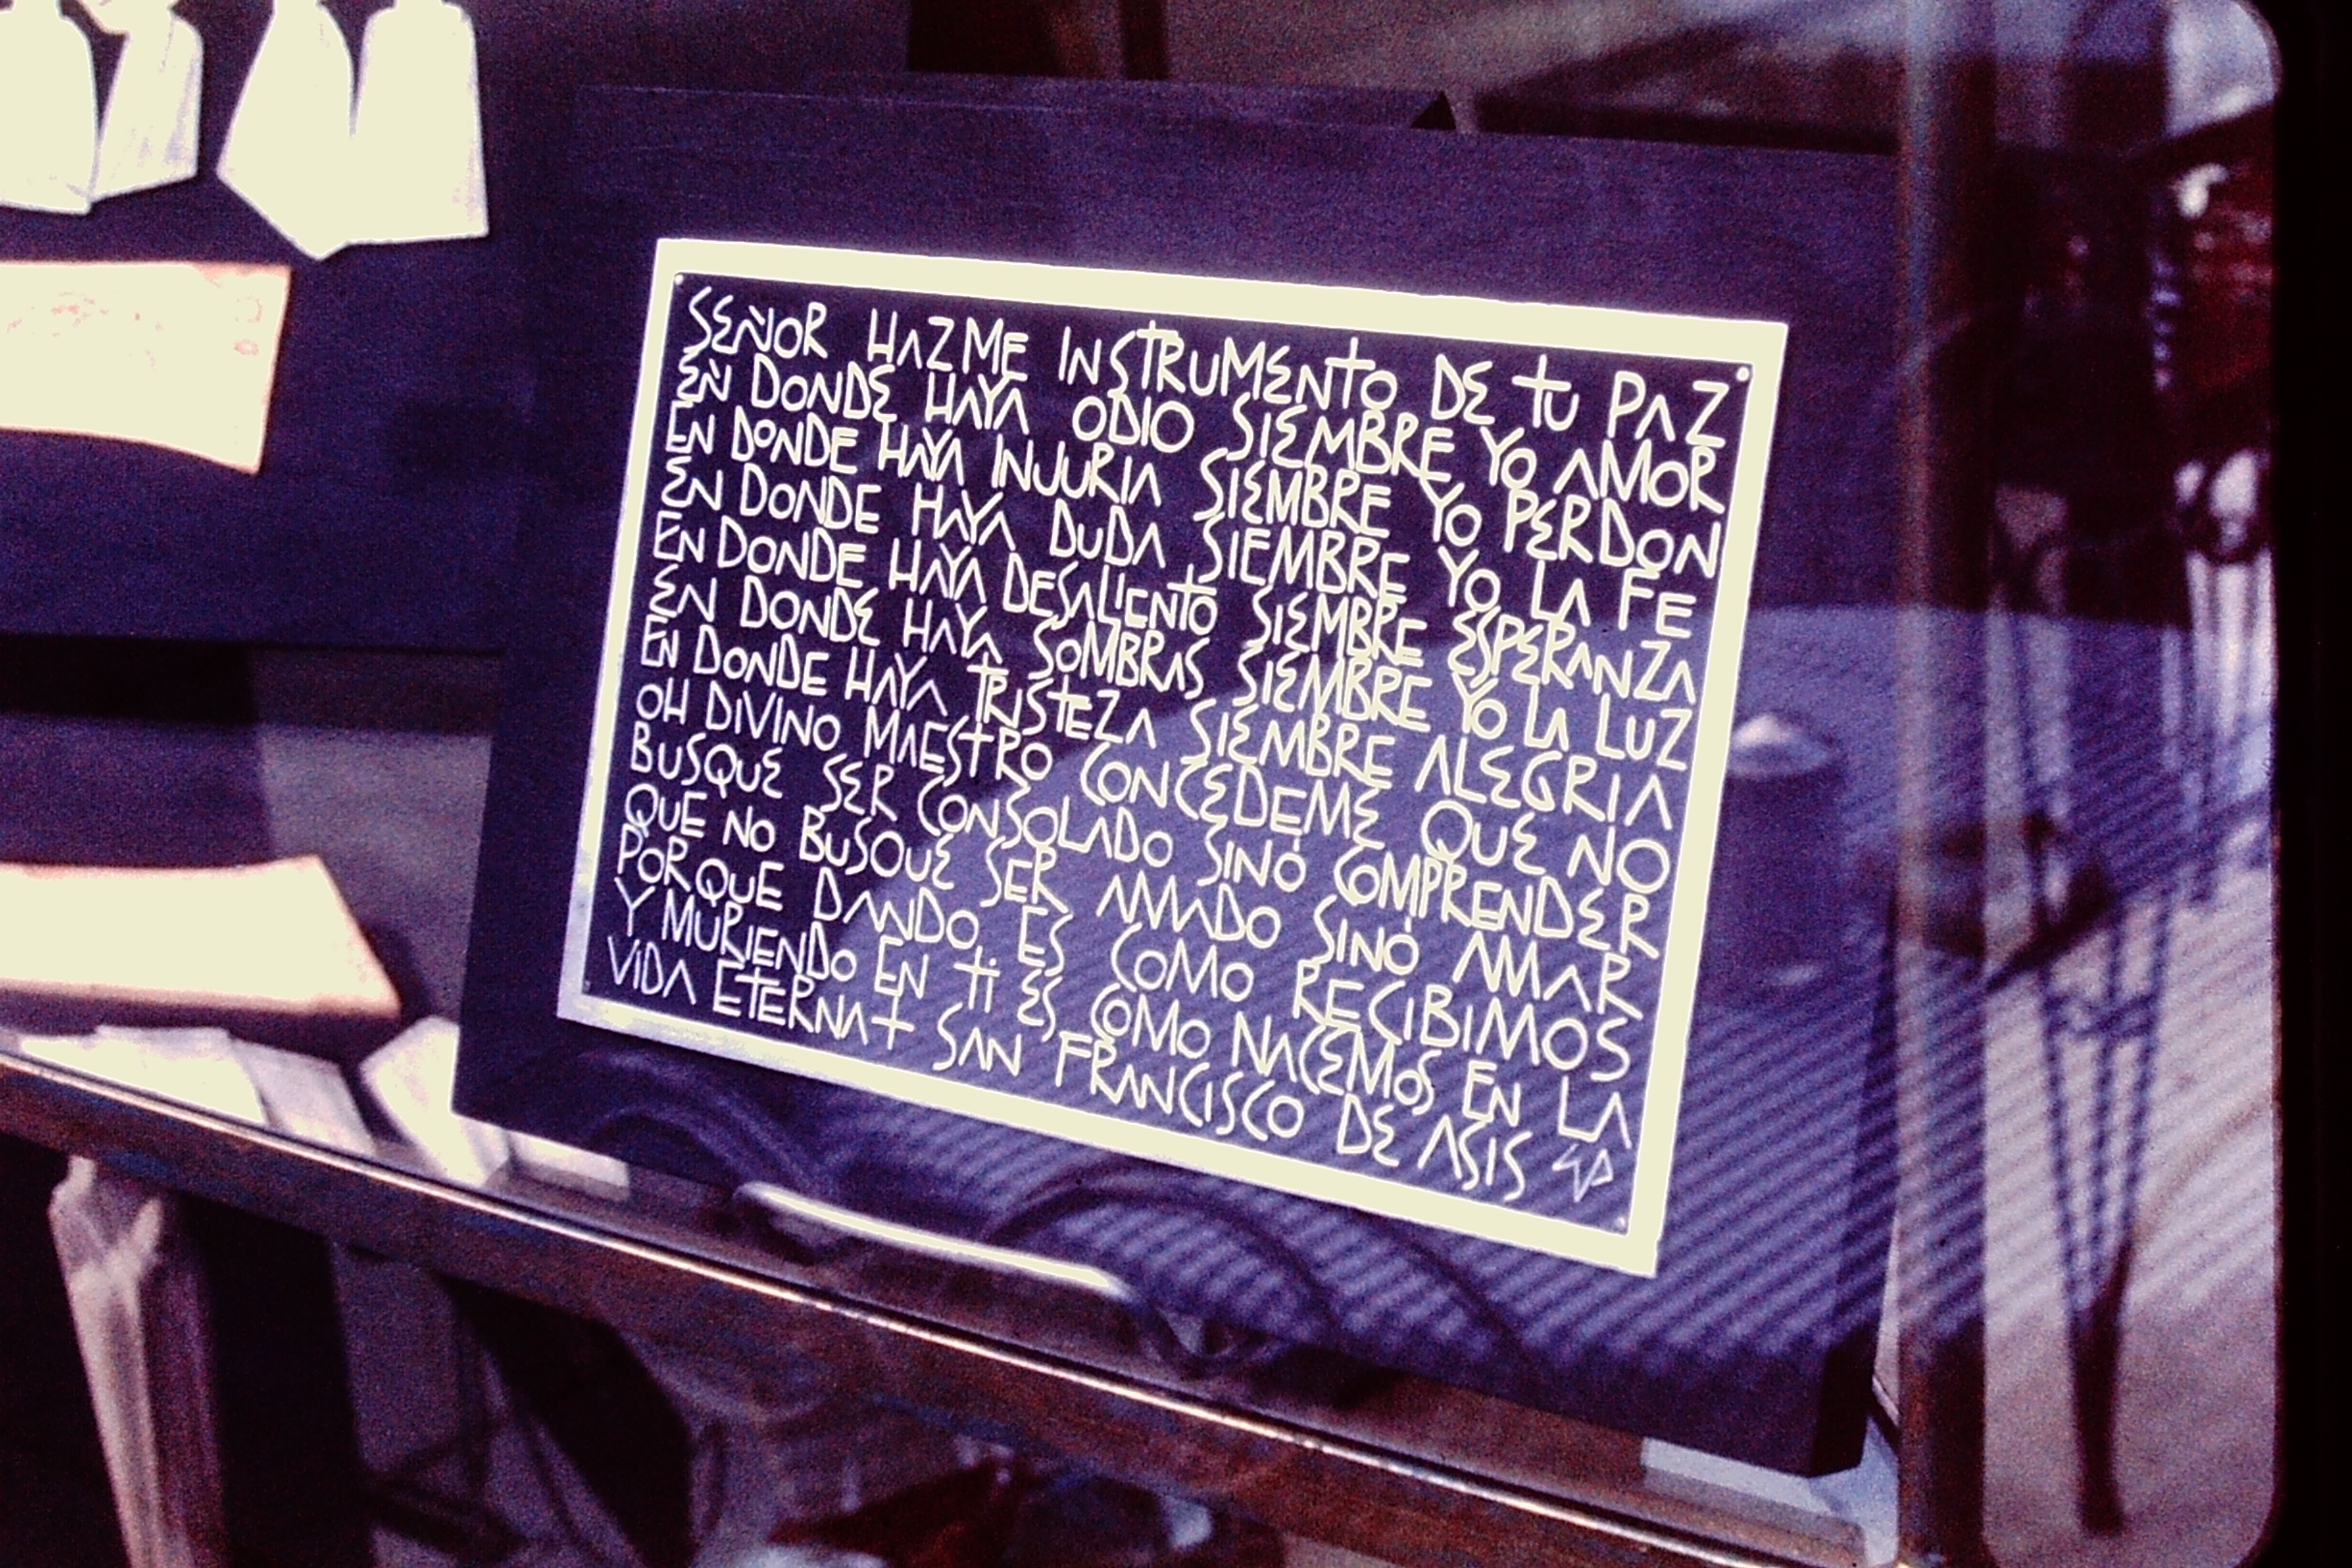 SEÑOR HAZME INSTRUMENTO DE tU PAZ
EN DONDE HAYA ODIO SIEMBRE YO AMOR
EN DONDE HAYA INJURIA SIEMBRE YO PERDON
EN DONDE HAYA DUDA SIEMBRE YO LA FE
EN DONDE HAYA DESALIENTO SIEMBRE ESPERANZA
EN DONDE HAYA SOMBRAS SIEMBRE YO LA LUZ
EN DONDE HAYA TRISTEZA SIEMBRE ALEGRIA
OH DIVINO MAESTRO CONCEDEME QUE NO
BUSQUE SER CONSOLADO SINO COMPRENDER
QUE NO BUSQUE SER AMADO SINO AMAR
PORQUE DANDO, ES COMO RECIBIMOS
Y MURIENDO EN ti ES COMO NACEMOS EN LA
VIDA ETERNA + SAN FRANCISCO DE ASIS